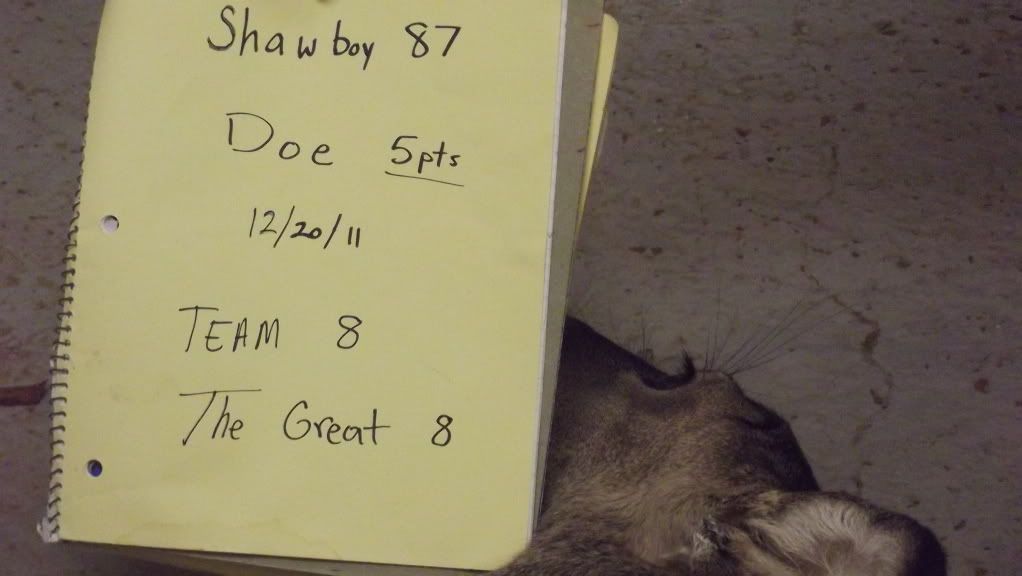 Shawboy 87
Doe 5pts
12/20/11
TEAM 8
The Great 8